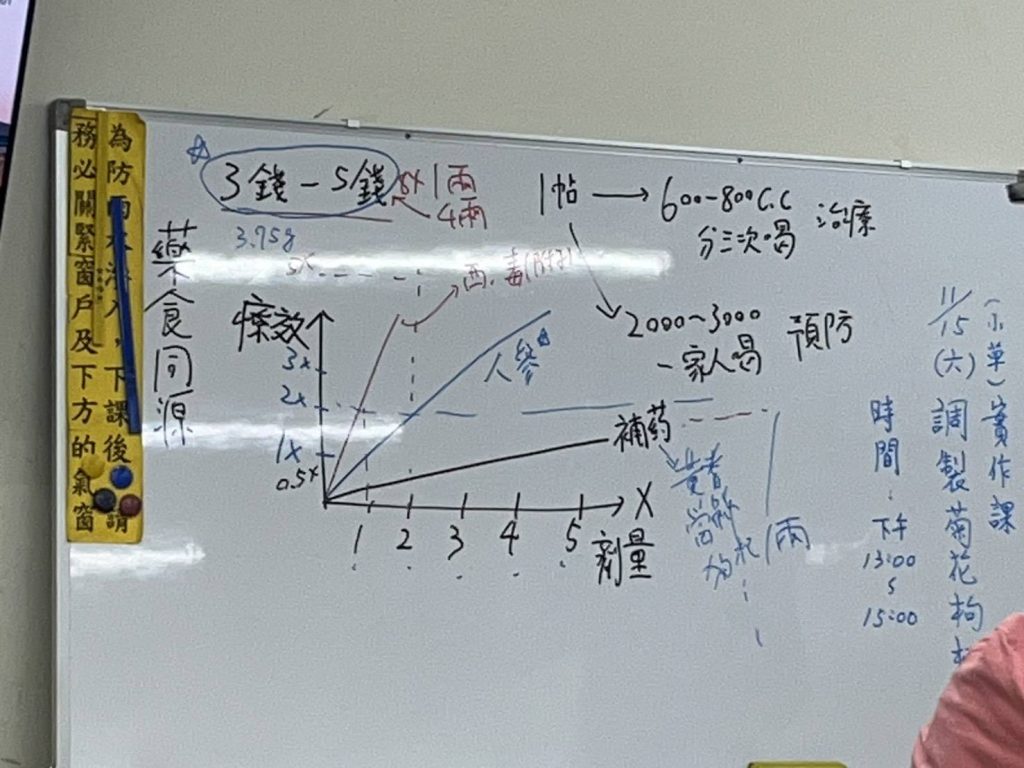 為防雨水滲入，下課後請
務必關緊窗戶及下方的氣窗
藥食同源
3錢-5錢
5x 1兩
4兩
3.75g
5x
西.毒(附子)
療效
3x
2x
1x
0.5x
人參
補药
黃耆
當歸
枸杞
1兩
1 2 3 4 5
X
劑量
1帖 → 600-800c.c 治療
分三次喝
2000~3000 預防
一家人喝
11/15(六)
(示草)實作課
調製菊花枸
時間:
下午
13:00
15:00